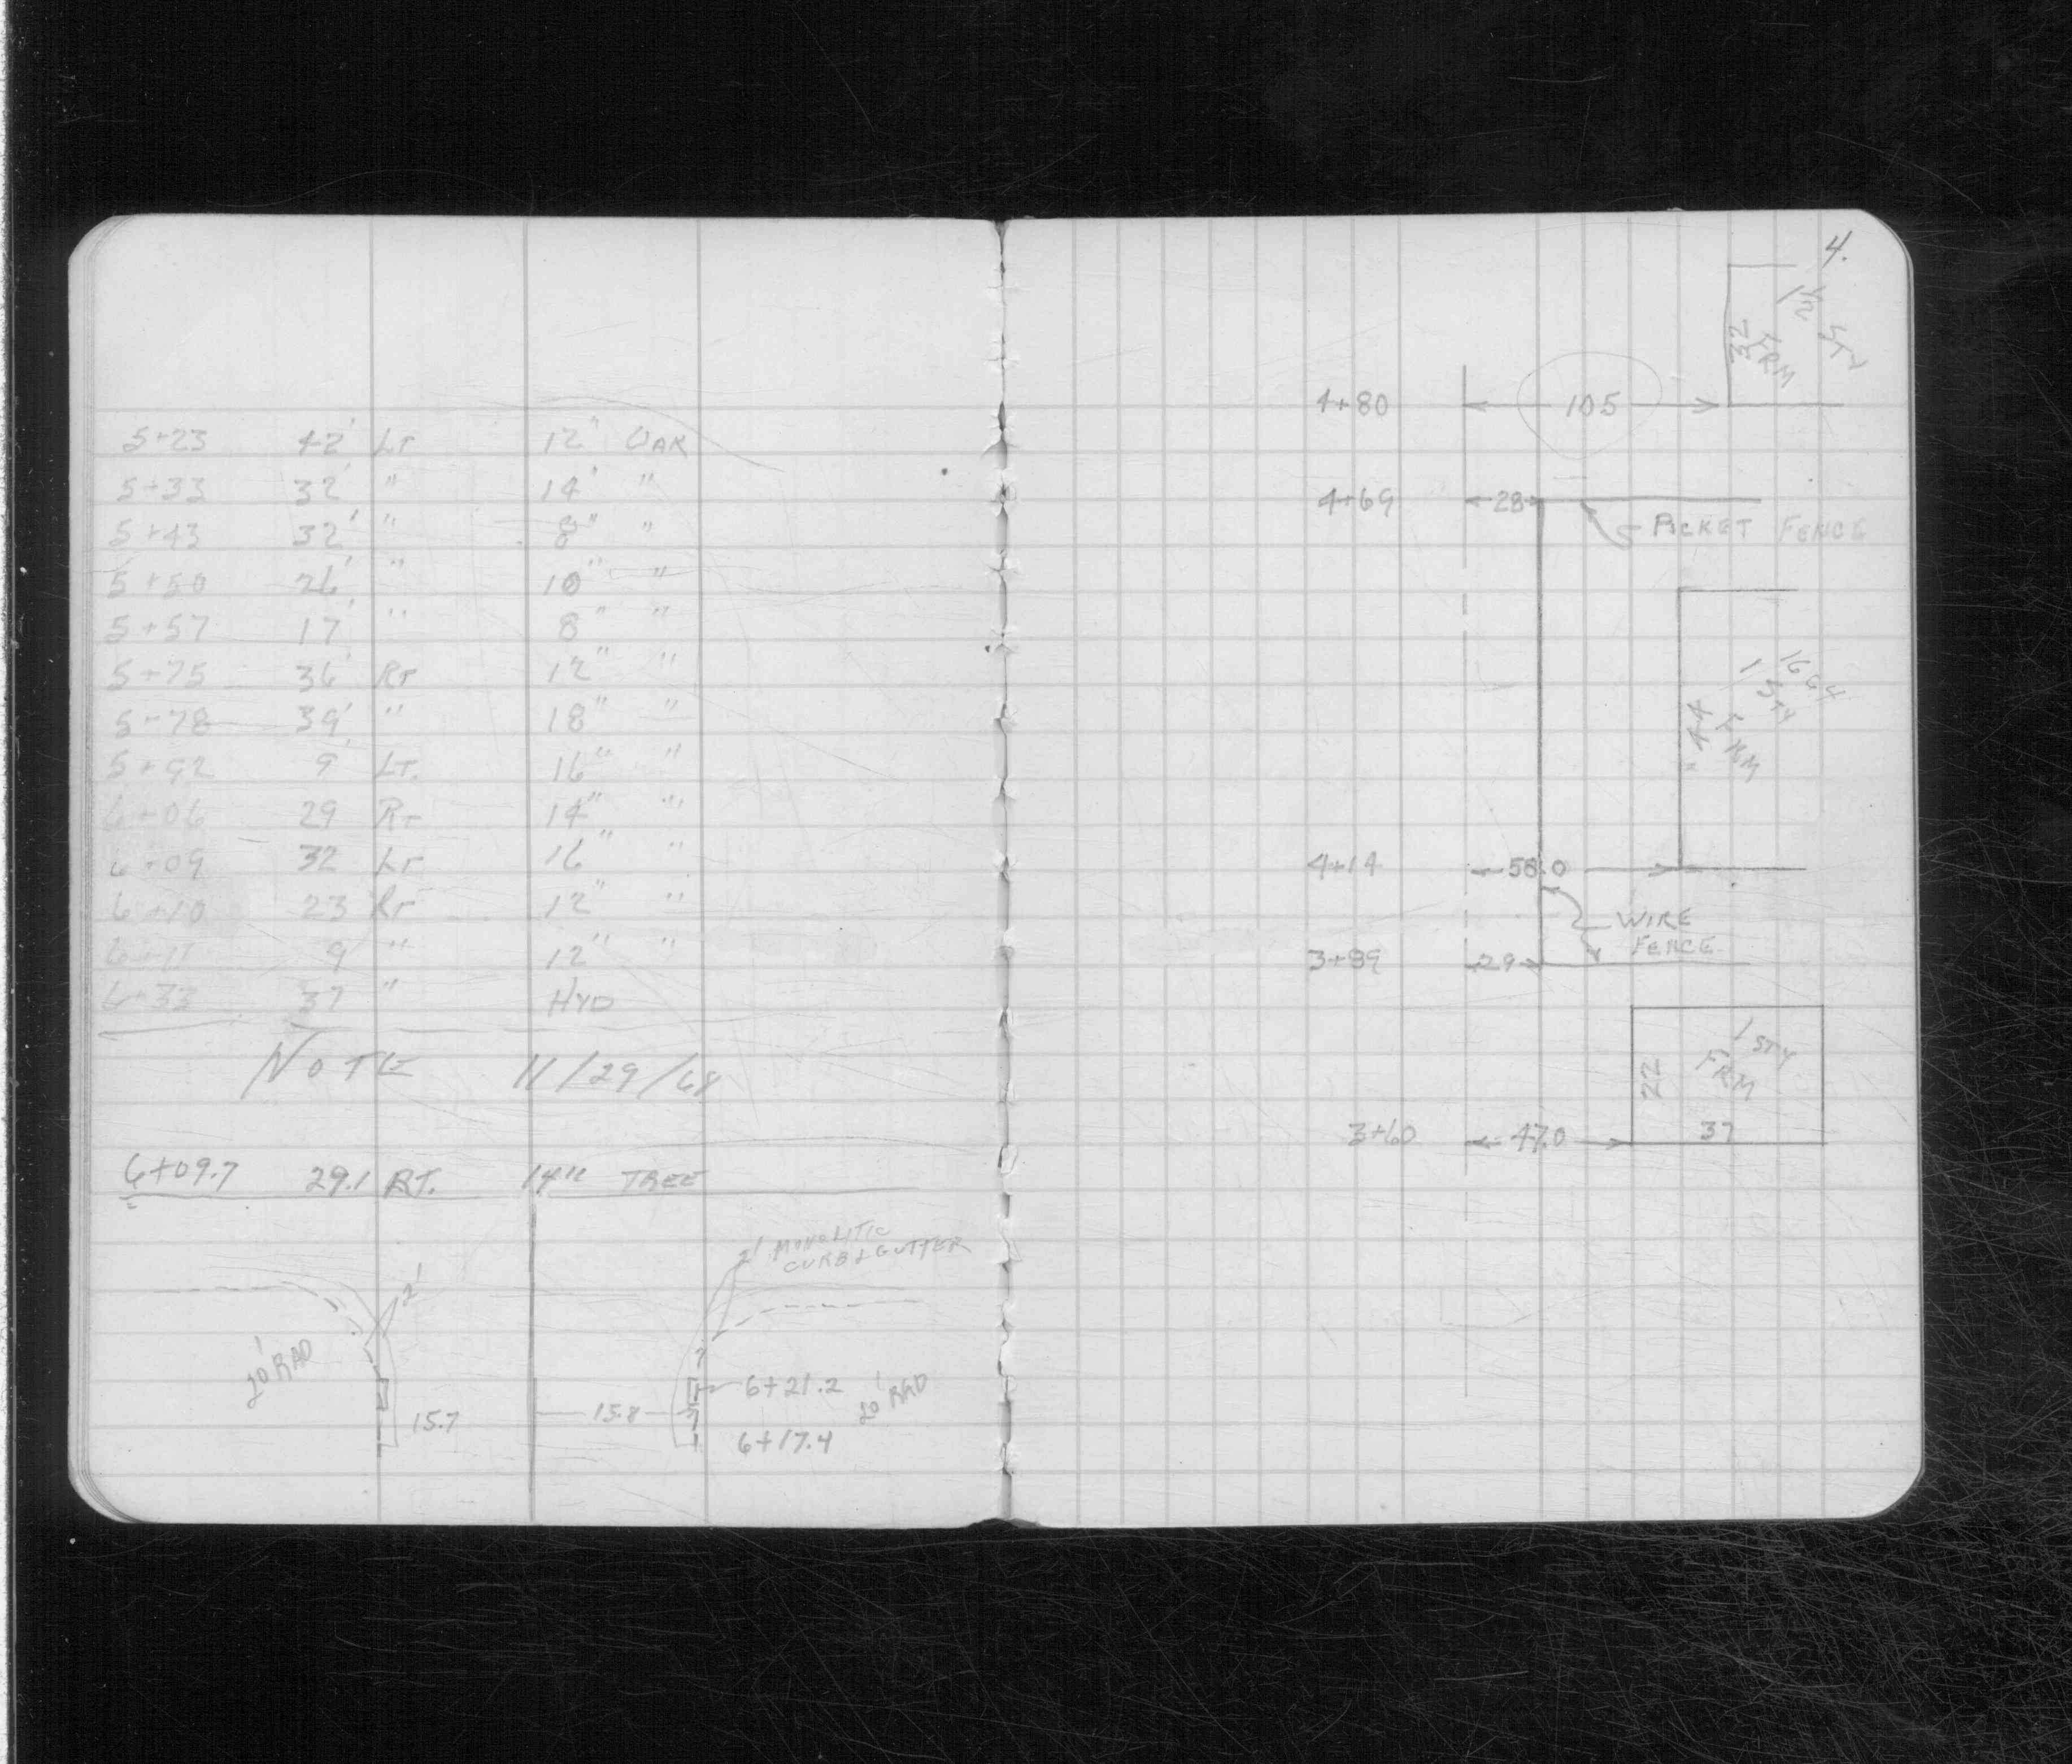 5+23 42' LT 12" OAK
5+33 32' " 14' "
5+43 32' " 8" "
5+50 26' " 10" "
5+57 17' " 8" "
5+75 36' RT 12" "
5+78 39' " 18" "
5+92 9' LT. 16" "
6+06 29 RT 14" "
6+09 32 LT 16" "
6+10 23 RT 12" "
6+11 9 " 12" "
6+33 37 " HYD
NOTE 11/29/68
6+09.7 29.1 RT. 14" TREE
2' MONOLITIC
CURB & GUTTER
2'
20' RAD
6+21.2
20' RAD
15.7
15.8
6+17.4
4.
32
FRM
STY
4+80 105
4+69 28
PICKET FENCE
1664
1 STY
FRM
44
4+14 58.0
WIRE
FENCE
3+89 29
1 STY
FRM
22
3+60 47.0 37